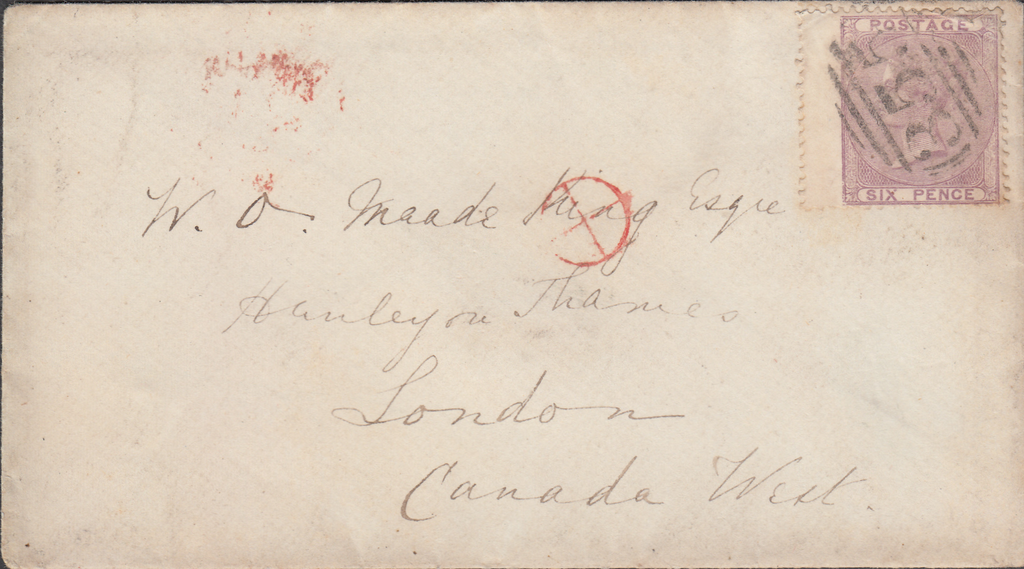 POSTAGE
SIX PENCE
W. O. Maade King Esqre
Hunley on Thames
London
Canada West.